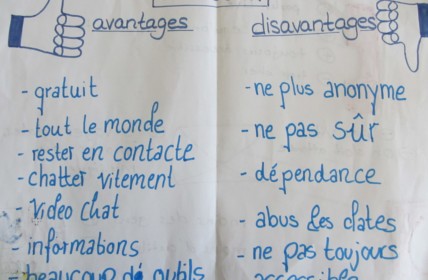 avantages
- gratuit
- tout le monde
- rester en contacte
- chatter vitement
- Video chat
- informations
- beaucoup de outils
disavantages
- ne plus anonyme
- ne pas sûr
- dépendance
- abus des dates
- ne pas toujours